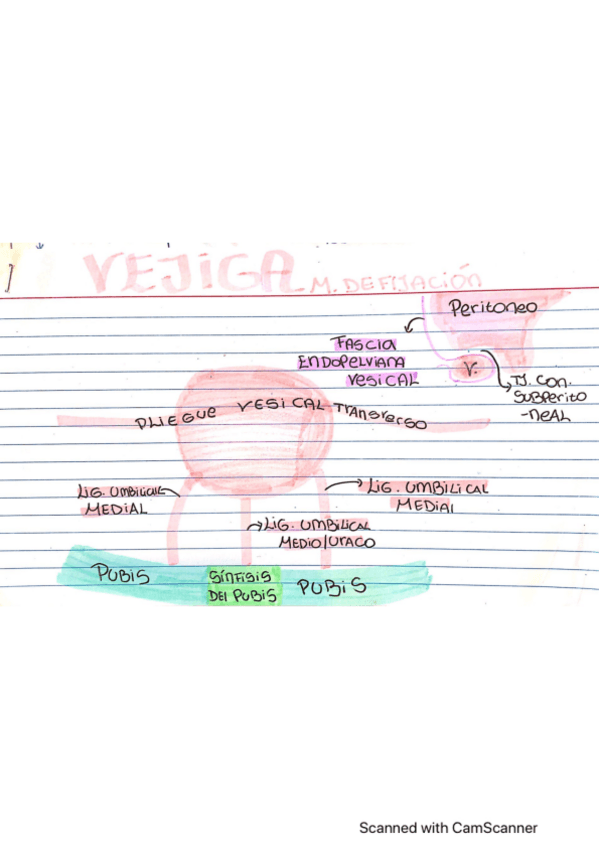 VEJIGA M. DE FIJACIÓN
Peritoneo
FASCIA
ENDOPELVIANA
VESICAL
V.
TJ. CON.
SUBPERITO
-NEAL
PLIEGUE VESICAL TRANSVERSO
LIG. UMBILICAL
MEDIAL
LIG. UMBILICAL
MEDIAL
LIG. UMBILICAL
MEDIO/URACO
PUBIS
SÍNFISIS
DEL PUBIS
PUBIS
Scanned with CamScanner